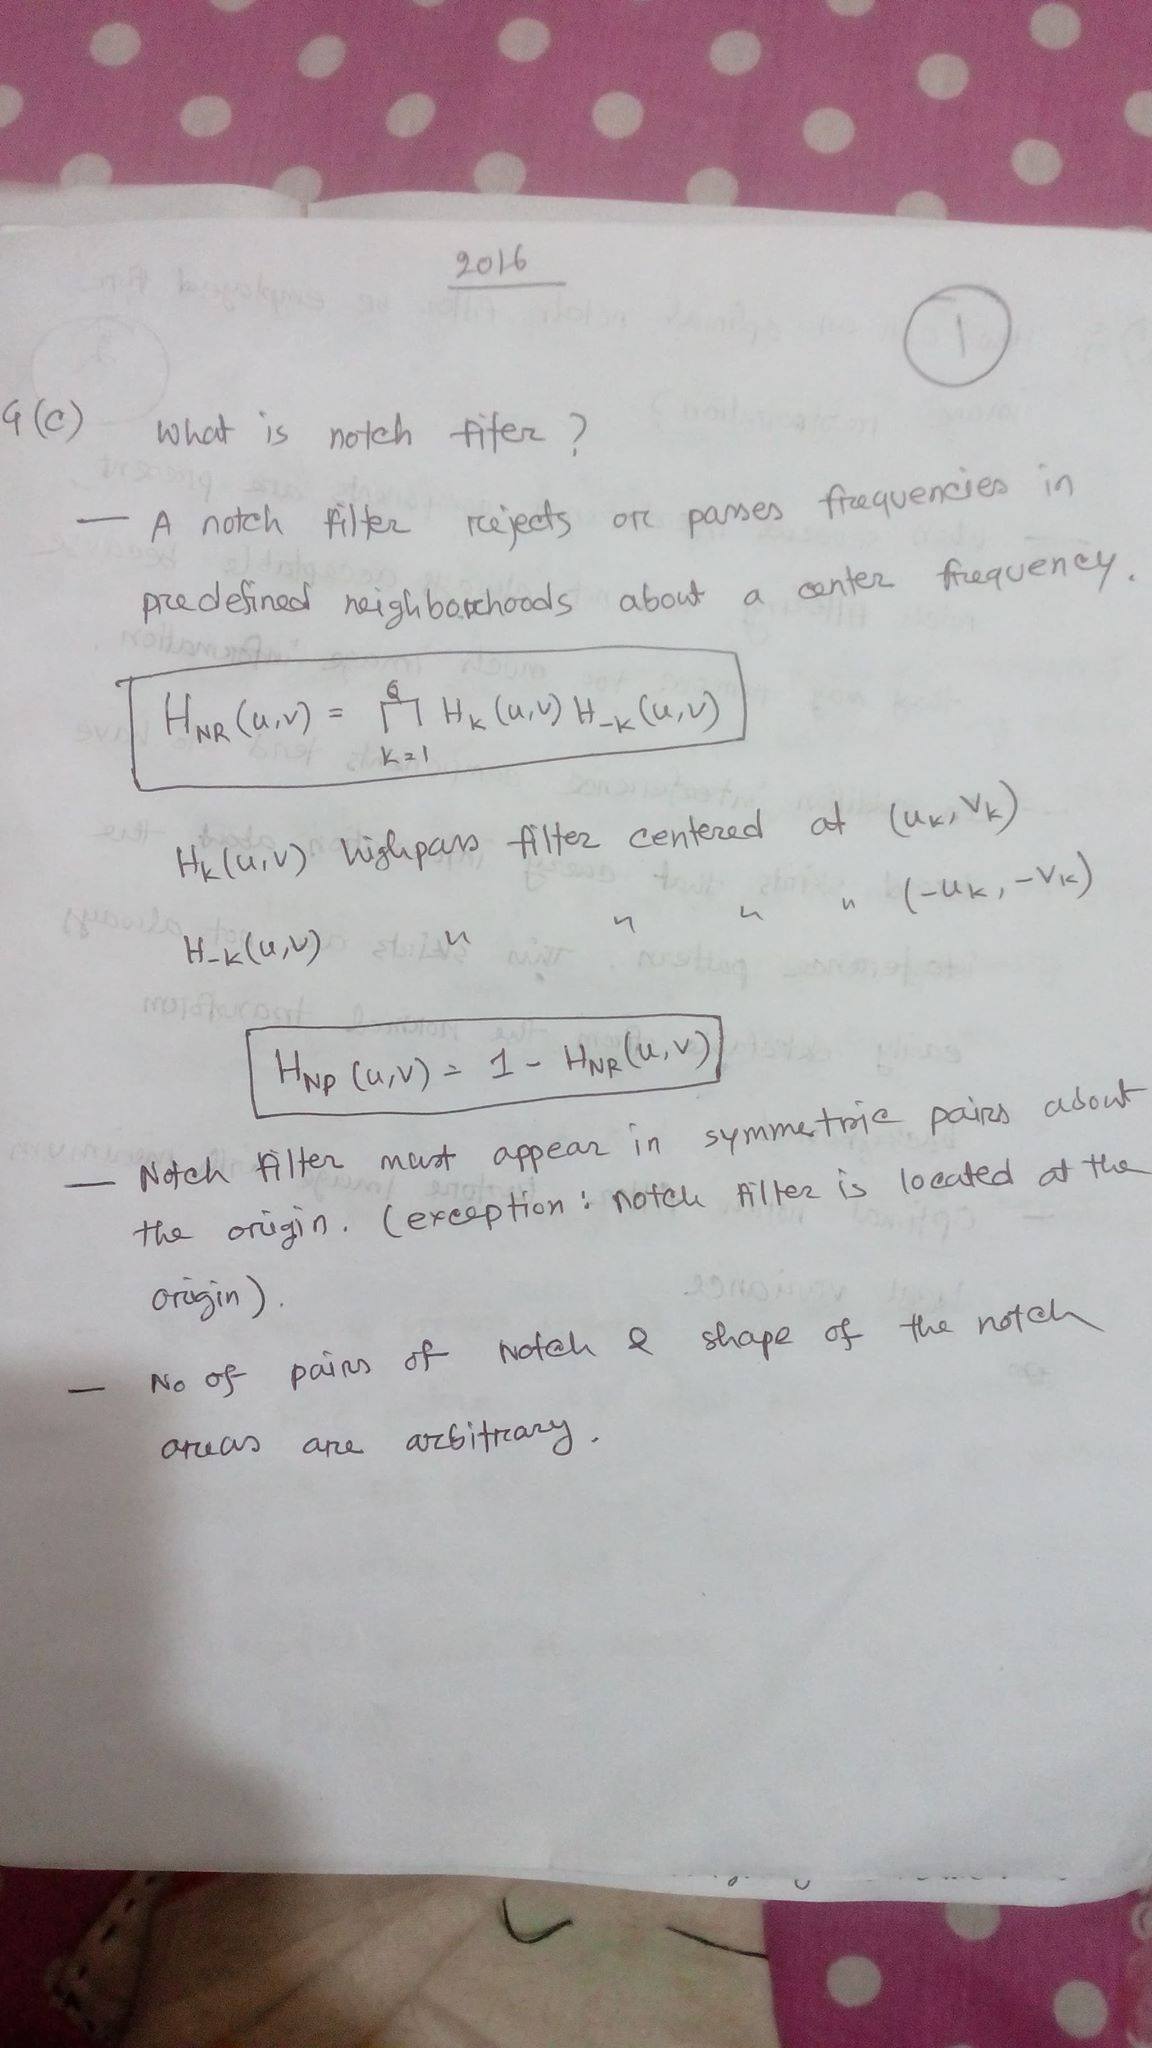 2016
1
What is notch fiter?
— A notch filter rejects or passes frequencies in
predefined neighborhoods about a center frequency.
H_NR (u,v) = ∏_{k=1}^{Q} H_k (u,v) H_-k (u,v)
H_k (u,v) highpass filter centered at (u_k, v_k)
H_-k (u,v) " " " " (-u_k, -v_k)
H_NP (u,v) = 1 - H_NR (u,v)
— Notch filter must appear in symmetric pairs about
the origin. (exception: notch filter is located at the
origin).
— No of pairs of notch & shape of the notch
areas are arbitrary.